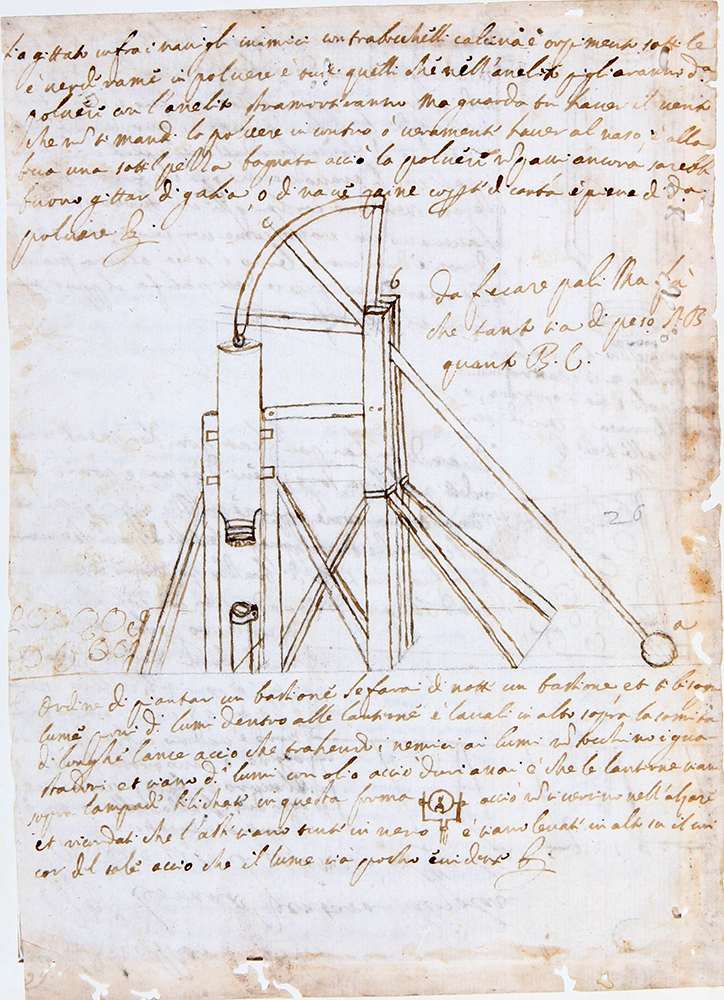 sia gittato infra i navigli inimici con trabocchelli calcina e orpimento sottile
e verderame in polvere e tutti quelli che nell'anelito pigliaranno da
polvere con l'anelito stramortiranno Ma guarda tu haver il vento
che nō ti mandi la polvere incontro ò veramente haver al naso, e alla
una sottil pezza bagnata acciò la polvere nō ancora sarebbe
buono gittar di gabia, ò di nave di carta e piene di da
polvere
c
b
da ficcare pali Ma fà
che tanto sia di peso A. B
quanto B. C.
26
a
Ordine di piantar un bastione se farai di notte un bastione et ti bisogna
lume poni di lumi dentro alle lanterne e lavali in alto sopra la sommità
di longhe lance acciò che trahendo i nemici ai lumi nō tocchino i gua
statori et siano di lumi con olio acciò e che le lanterne siano
sopra lampade bilicate in questa forma acciò nō si versino nell'alzare
et ricordati che l'asti siano tinti in nero e siano levati in alto su il
cor del sole acciò che il lume sia pocho evidente